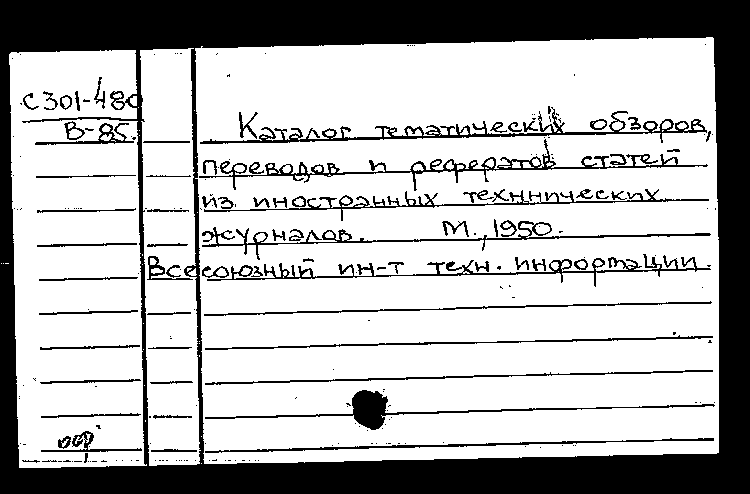 С301-480
В-85.
Каталог тематических обзоров,
переводов и рефератов статей
из иностранных техннических
журналов. М., 1950.
Всесоюзный ин-т техн. информации.